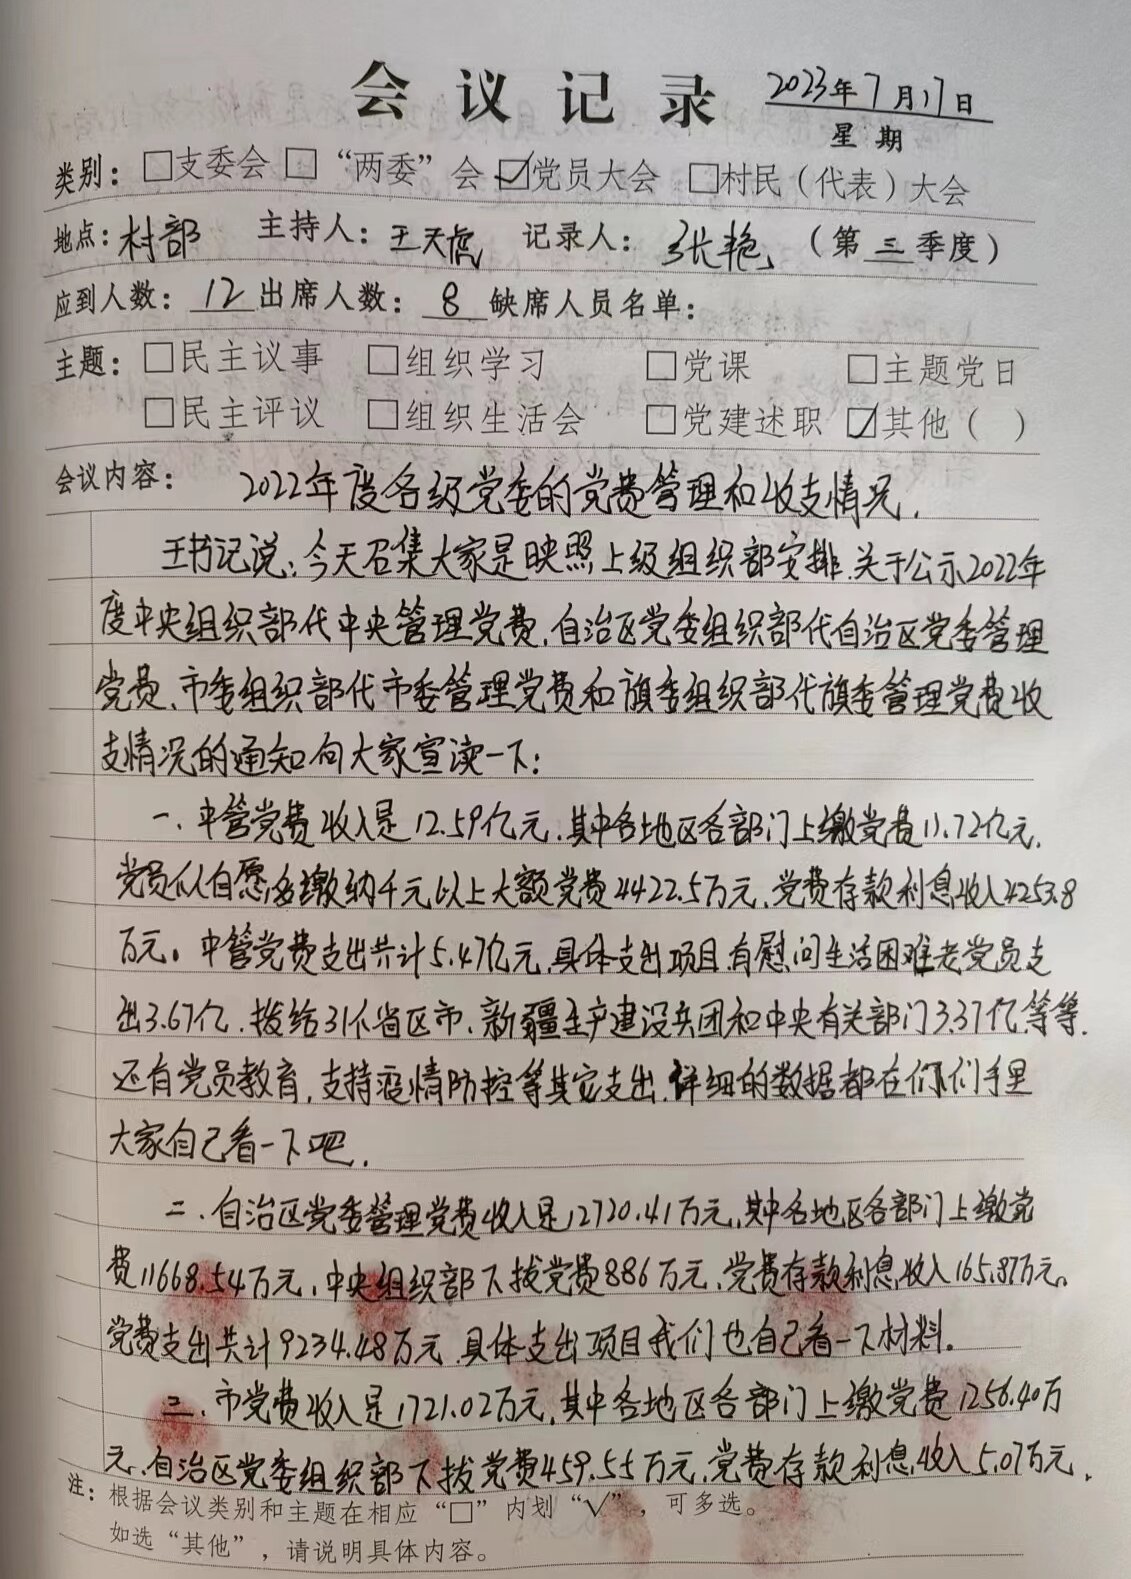 会议记录 2023年7月17日
星期
类别：□支委会 □“两委”会 ☑党员大会 □村民（代表）大会
地点：村部 主持人：王天虎 记录人：张艳 （第三季度）
应到人数：12出席人数：8缺席人员名单：
主题：□民主议事 □组织学习 □党课 □主题党日
□民主评议 □组织生活会 □党建述职 ☑其他（ ）
会议内容： 2022年度各级党委的党费管理和收支情况.
王书记说：今天召集大家是映照上级组织部安排.关于公示2022年
度中央组织部代中央管理党费.自治区党委组织部代自治区党委管理
党费、市委组织部代市委管理党费和旗委组织部代旗委管理党费收
支情况的通知向大家宣读一下：
一、中管党费收入是12.59亿元.其中各地区各部门上缴党费11.72亿元.
党员们自愿多缴纳千元以上大额党费4422.5万元.党费存款利息收入4253.8
万元。中管党费支出共计5.47亿元.具体支出项目有慰问生活困难老党员支
出3.67亿.拨给31个省区市、新疆生产建设兵团和中央有关部门3.37亿等等.
还有党员教育,支持疫情防控等其它支出.详细的数据都在你们手里
大家自己看一下吧.
二、自治区党委管理党费收入是12720.41万元,其中各地区各部门上缴党
费11668.54万元,中央组织部下拔党费886万元,党费存款利息收入165.87万元。
党费支出共计9234.48万元.具体支出项目我们也自己看一下材料。
三、市党费收入是1721.02万元,其中各地区各部门上缴党费1256.40万
元、自治区党委组织部下拔党费459.55万元,党费存款利息收入5.07万元.
注：根据会议类别和主题在相应“□”内划“√”，可多选。
如选“其他”，请说明具体内容。